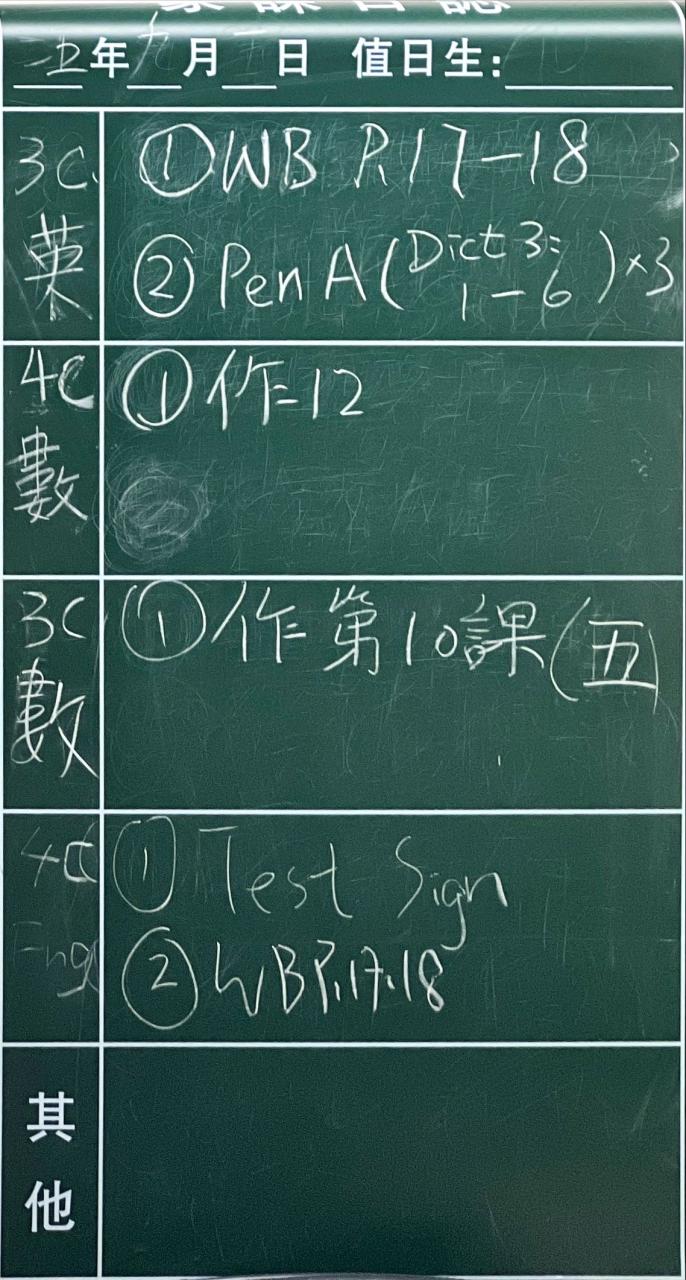 家課日誌
二五年九月三日 值日生:
3C. 英
①WB P.17-18
②Pen A(Dict 3: 1-6)×3
4C 數
①作12
3C 數
①作第10課(五
4C Eng
①Test Sign
②WBP.17.18
其他